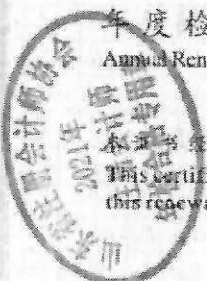 年度检
Annual Ren
本证书经
This certifi
this renewa
山东省注册会计师协会
2021年
注册会计师